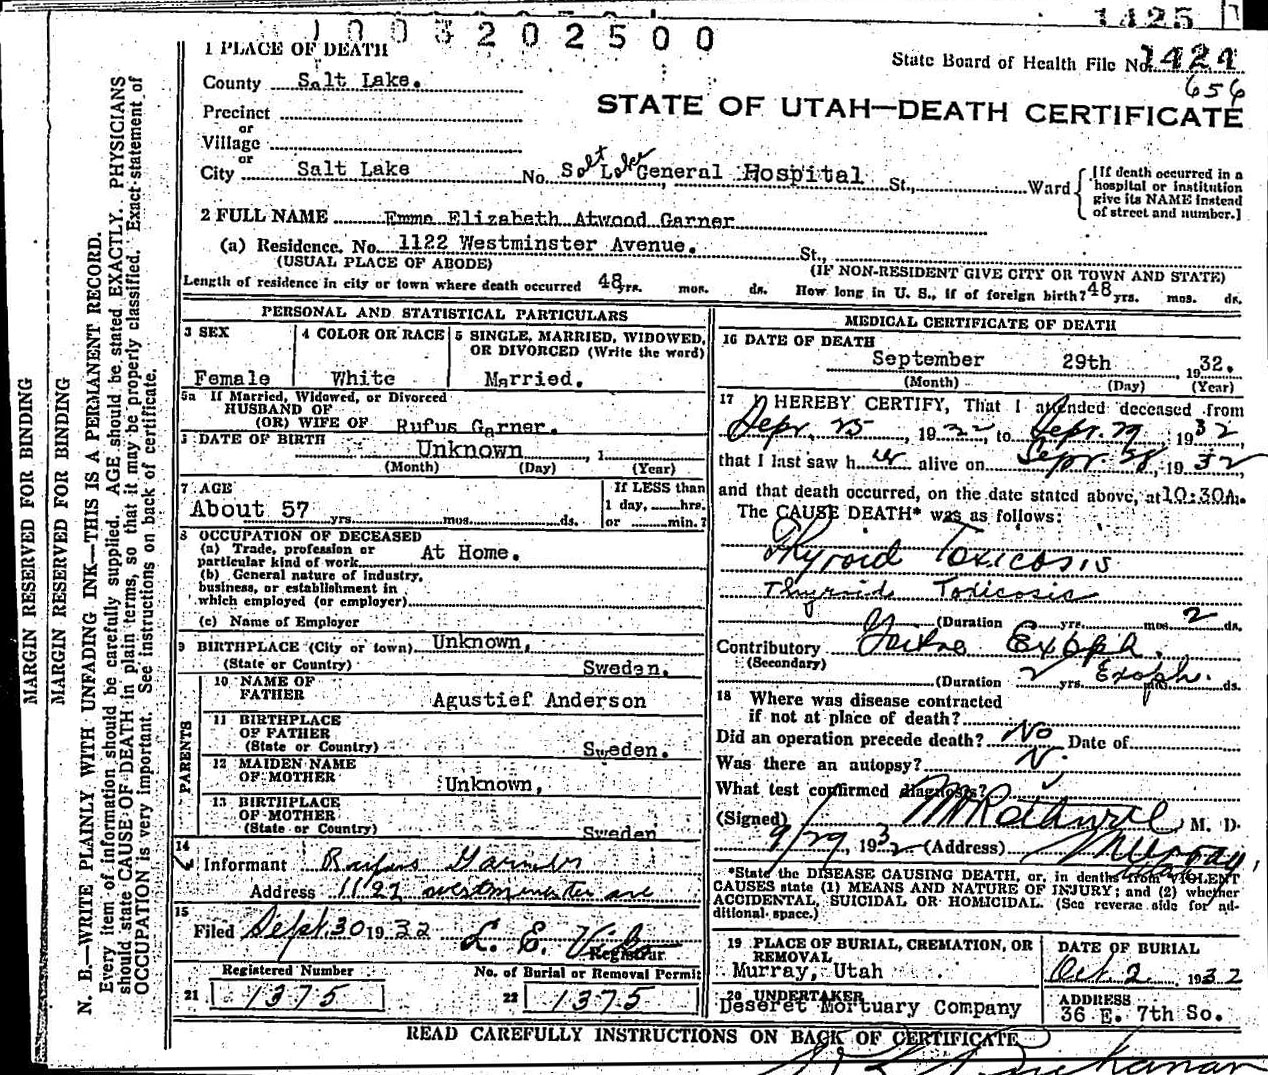 1003202500
1425
1 PLACE OF DEATH
State Board of Health File No. 1424
656
County Salt Lake.
STATE OF UTAH—DEATH CERTIFICATE
Precinct
or
Village
or
City Salt Lake No. Salt Lake General Hospital St., Ward
[If death occurred in a
hospital or institution
give its NAME instead
of street and number.]
2 FULL NAME Emma Elizabeth Atwood Garner
(a) Residence. No. 1122 Westminster Avenue. St.,
(USUAL PLACE OF ABODE) (IF NON-RESIDENT GIVE CITY OR TOWN AND STATE)
Length of residence in city or town where death occurred 48 yrs. mos. ds. How long in U. S., if of foreign birth? 48 yrs. mos. ds.
PERSONAL AND STATISTICAL PARTICULARS
3 SEX
Female
4 COLOR OR RACE
White
5 SINGLE, MARRIED, WIDOWED,
OR DIVORCED (Write the word)
Married.
5a If Married, Widowed, or Divorced
HUSBAND OF
(OR) WIFE OF Rufus Garner.
DATE OF BIRTH
Unknown , 1
(Month) (Day) (Year)
7 AGE
About 57 yrs. mos. ds.
If LESS than
1 day, hrs.
or min.?
8 OCCUPATION OF DECEASED
(a) Trade, profession or
particular kind of work At Home.
(b) General nature of industry,
business, or establishment in
which employed (or employer)
(c) Name of Employer
9 BIRTHPLACE (City or town) Unknown,
(State or Country) Sweden.
PARENTS
10 NAME OF
FATHER Agustief Anderson
11 BIRTHPLACE
OF FATHER
(State or Country) Sweden.
12 MAIDEN NAME
OF MOTHER Unknown,
13 BIRTHPLACE
OF MOTHER
(State or Country) Sweden
14
Informant Rufus Garner
Address 1122 Westminster ave
15
Filed Sept. 30 1932 L. E.
Registrar
Registered Number
21 1375
No. of Burial or Removal Permit
22 1375
MEDICAL CERTIFICATE OF DEATH
16 DATE OF DEATH
September 29th , 1932.
(Month) (Day) (Year)
17 I HEREBY CERTIFY, That I attended deceased from
Sept. 25, 1932, to Sept. 29, 1932,
that I last saw her alive on Sept 28, 1932
and that death occurred, on the date stated above, at 10:30A.
The CAUSE DEATH* was as follows:
Thyroid Toxicosis
Thyroid Toxicosis
(Duration yrs. mos. 2 ds.
Contributory Goitre Exoph.
(Secondary)
(Duration 2 yrs. Exoph. mos. ds.
18 Where was disease contracted
if not at place of death?
Did an operation precede death? No Date of
Was there an autopsy? N.
What test confirmed diagnosis?
(Signed) Rothwell M. D.
9/29, 1932 (Address) Murray,
*State the DISEASE CAUSING DEATH, or, in deaths from VIOLENT
CAUSES state (1) MEANS AND NATURE OF INJURY; and (2) whether
ACCIDENTAL, SUICIDAL OR HOMICIDAL. (See reverse side for ad-
ditional space.)
19 PLACE OF BURIAL, CREMATION, OR
REMOVAL
Murray, Utah
DATE OF BURIAL
Oct. 2 1932
20 UNDERTAKER
Deseret Mortuary Company
ADDRESS
36 E. 7th So.
READ CAREFULLY INSTRUCTIONS ON BACK OF CERTIFICATE
Buchanan
MARGIN RESERVED FOR BINDING
MARGIN RESERVED FOR BINDING
N. B.—WRITE PLAINLY WITH UNFADING INK—THIS IS A PERMANENT RECORD.
Every item of information should be carefully supplied. AGE should be stated EXACTLY. PHYSICIANS
should state CAUSE OF DEATH in plain terms, so that it may be properly classified. Exact statement of
OCCUPATION is very important. See instructions on back of certificate.